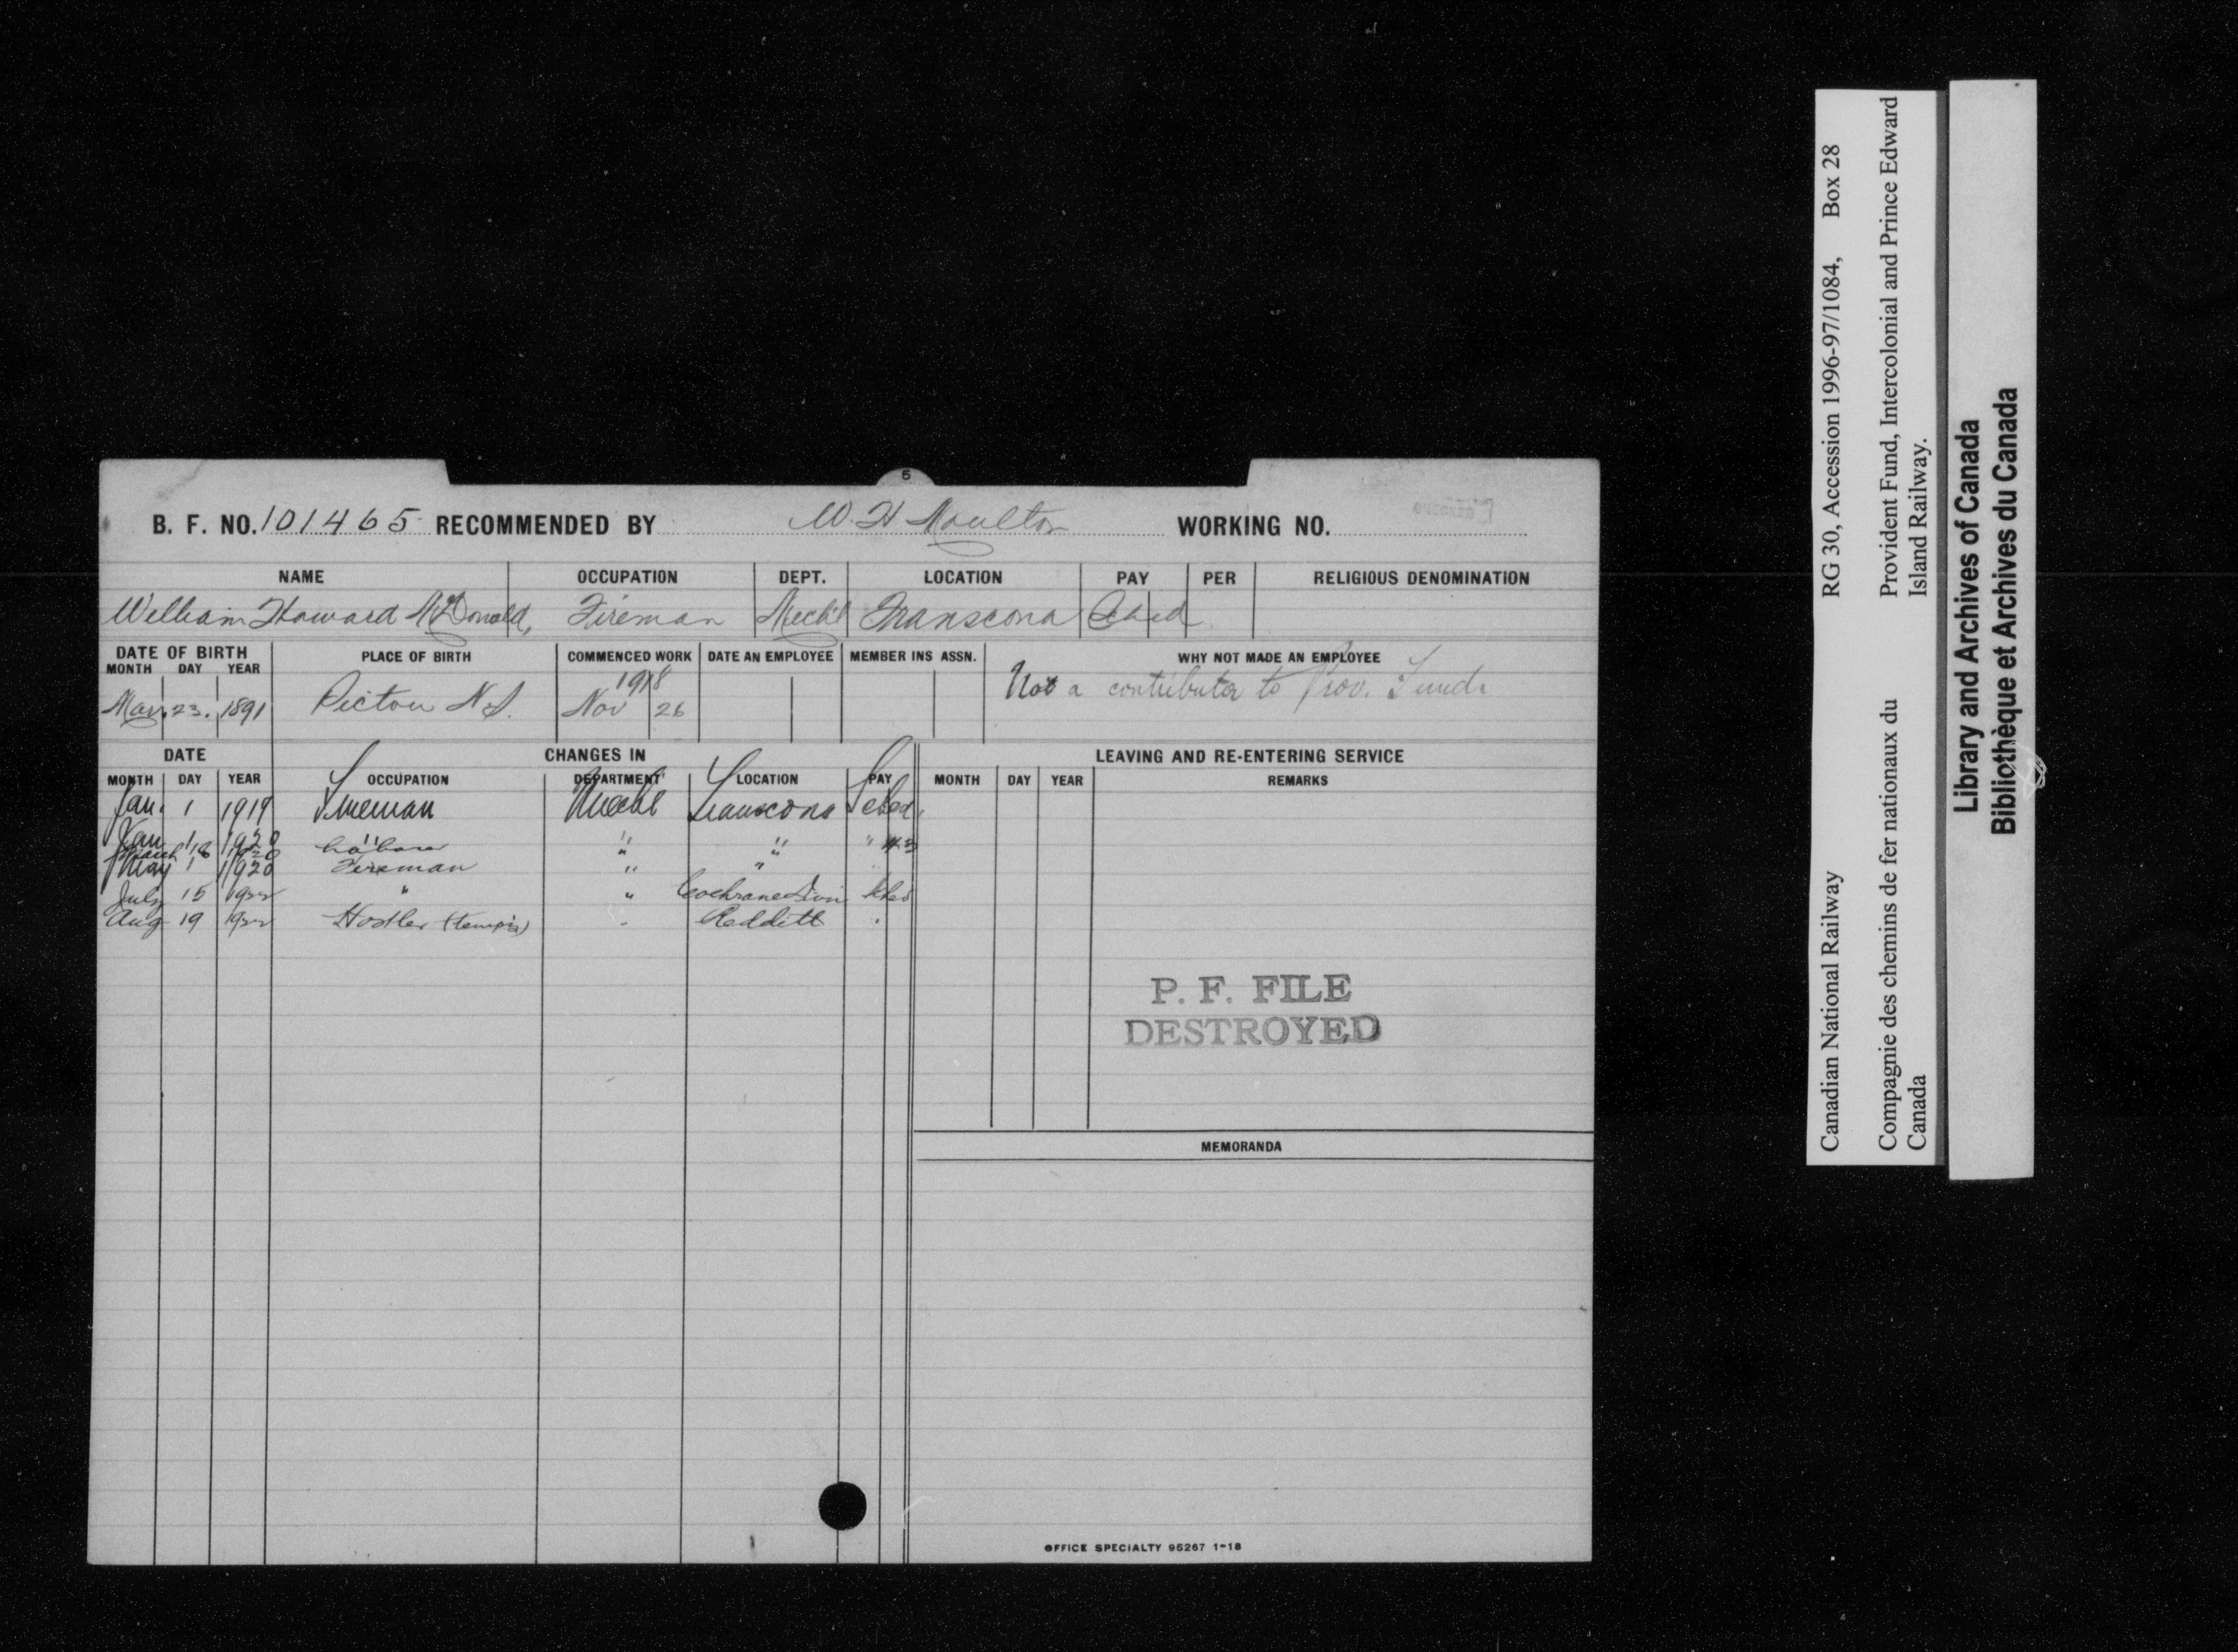 5
B. F. NO. 101465 RECOMMENDED BY W. H Moulton WORKING NO.
NAME OCCUPATION DEPT. LOCATION PAY PER RELIGIOUS DENOMINATION
William Howard McDonald, Fireman Mech'l Transcona Ched
DATE OF BIRTH PLACE OF BIRTH COMMENCED WORK DATE AN EMPLOYEE MEMBER INS ASSN. WHY NOT MADE AN EMPLOYEE
MONTH DAY YEAR
Mar. 23. 1891 Pictou N.S. 1918 Nov 26 Not a contributor to Prov. Fund.
DATE CHANGES IN LEAVING AND RE-ENTERING SERVICE
MONTH DAY YEAR OCCUPATION DEPARTMENT LOCATION PAY MONTH DAY YEAR REMARKS
Jan. 1 1919 Fireman Mechl Transcona Sched.
Jan 1 1920 " " "
March 18 1920 " " "
May 1 1920 Fireman " "
July 15 1922 " " Cochrane Divn Ched
Aug 19 1922 Hostler (temp'y) Redditt
P. F. FILE
DESTROYED
MEMORANDA
OFFICE SPECIALTY 95267 1-18
Canadian National Railway RG 30, Accession 1996-97/1084, Box 28
Compagnie des chemins de fer nationaux du Provident Fund, Intercolonial and Prince Edward
Canada Island Railway.
Library and Archives of Canada
Bibliothèque et Archives du Canada